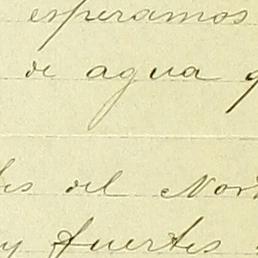 esperamos
de agua
del Nort
y fuertes